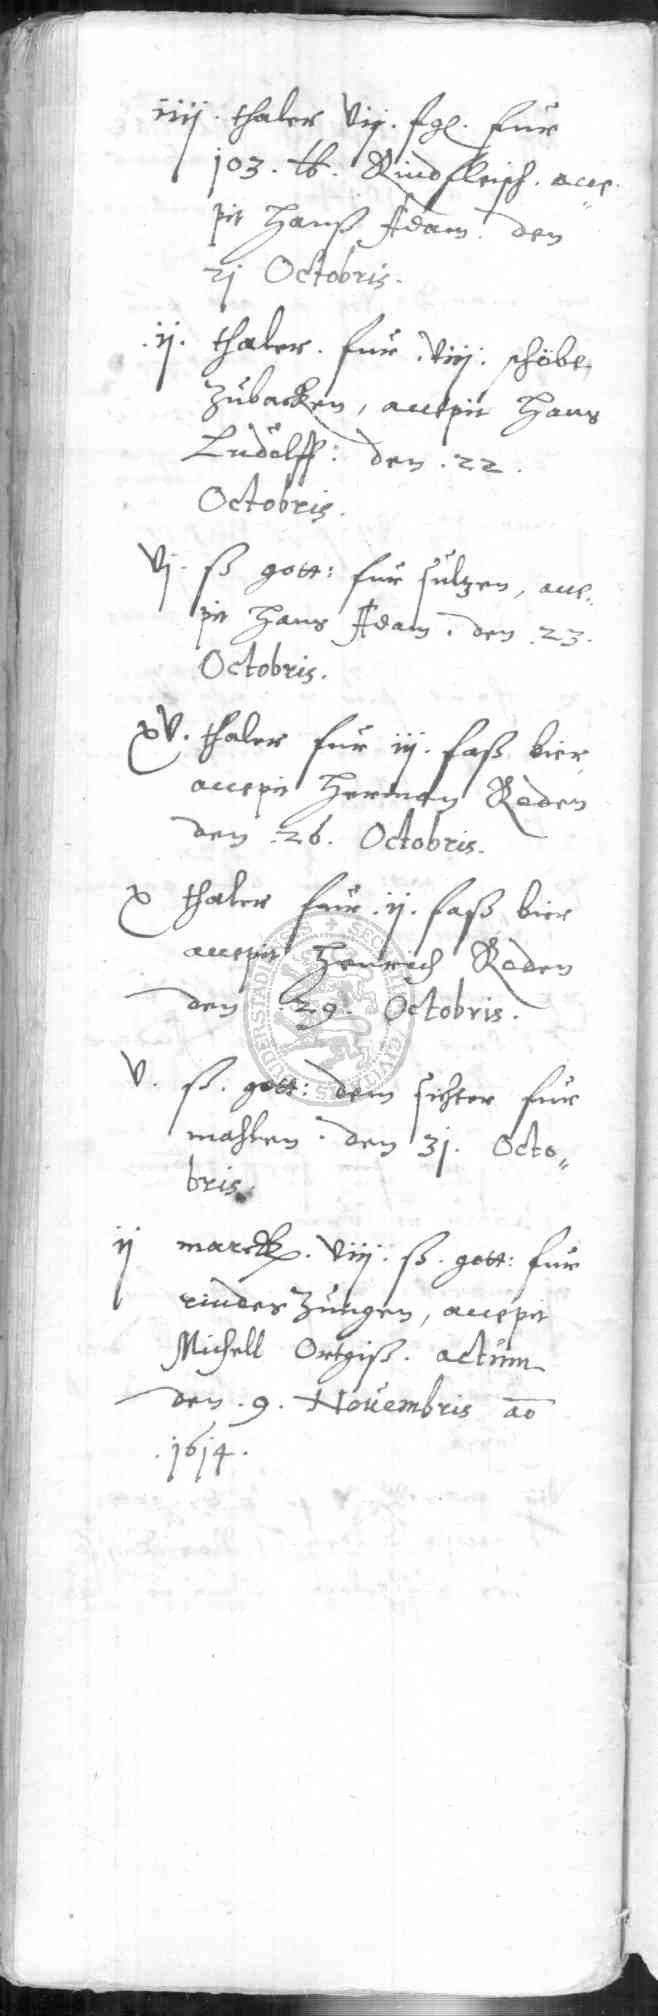 iiij. thaler vij. sgl. fur
103. tb. Rindfleisch. acce„
pit Hanß Adam. den
21 Octobris.
.ij. thaler. fur .viij. schöbe
zubacken, accepit Hans
Ludolff: den .22.
Octobris.
vj. ß gott: fur sultzen, acce„
pit Hans Adam. den .23.
Octobris.
xv. thaler fur iij. faß bier,
accepit Herman Roden
den .26. Octobris.
x thaler fur .ij. faß bier
accepit Henrich Roden
den .29. Octobris.
v. ß. gott: dem sichter fur
mahlen. den 31. Octo„
bris.
ij marck. viij. ß. gott: fur
rinder zungen, accepit
Michell Ortgiß. actum
den .9. Novembris ao
.1614.
SECR CIVITATIS DUDERSTADIENSIS